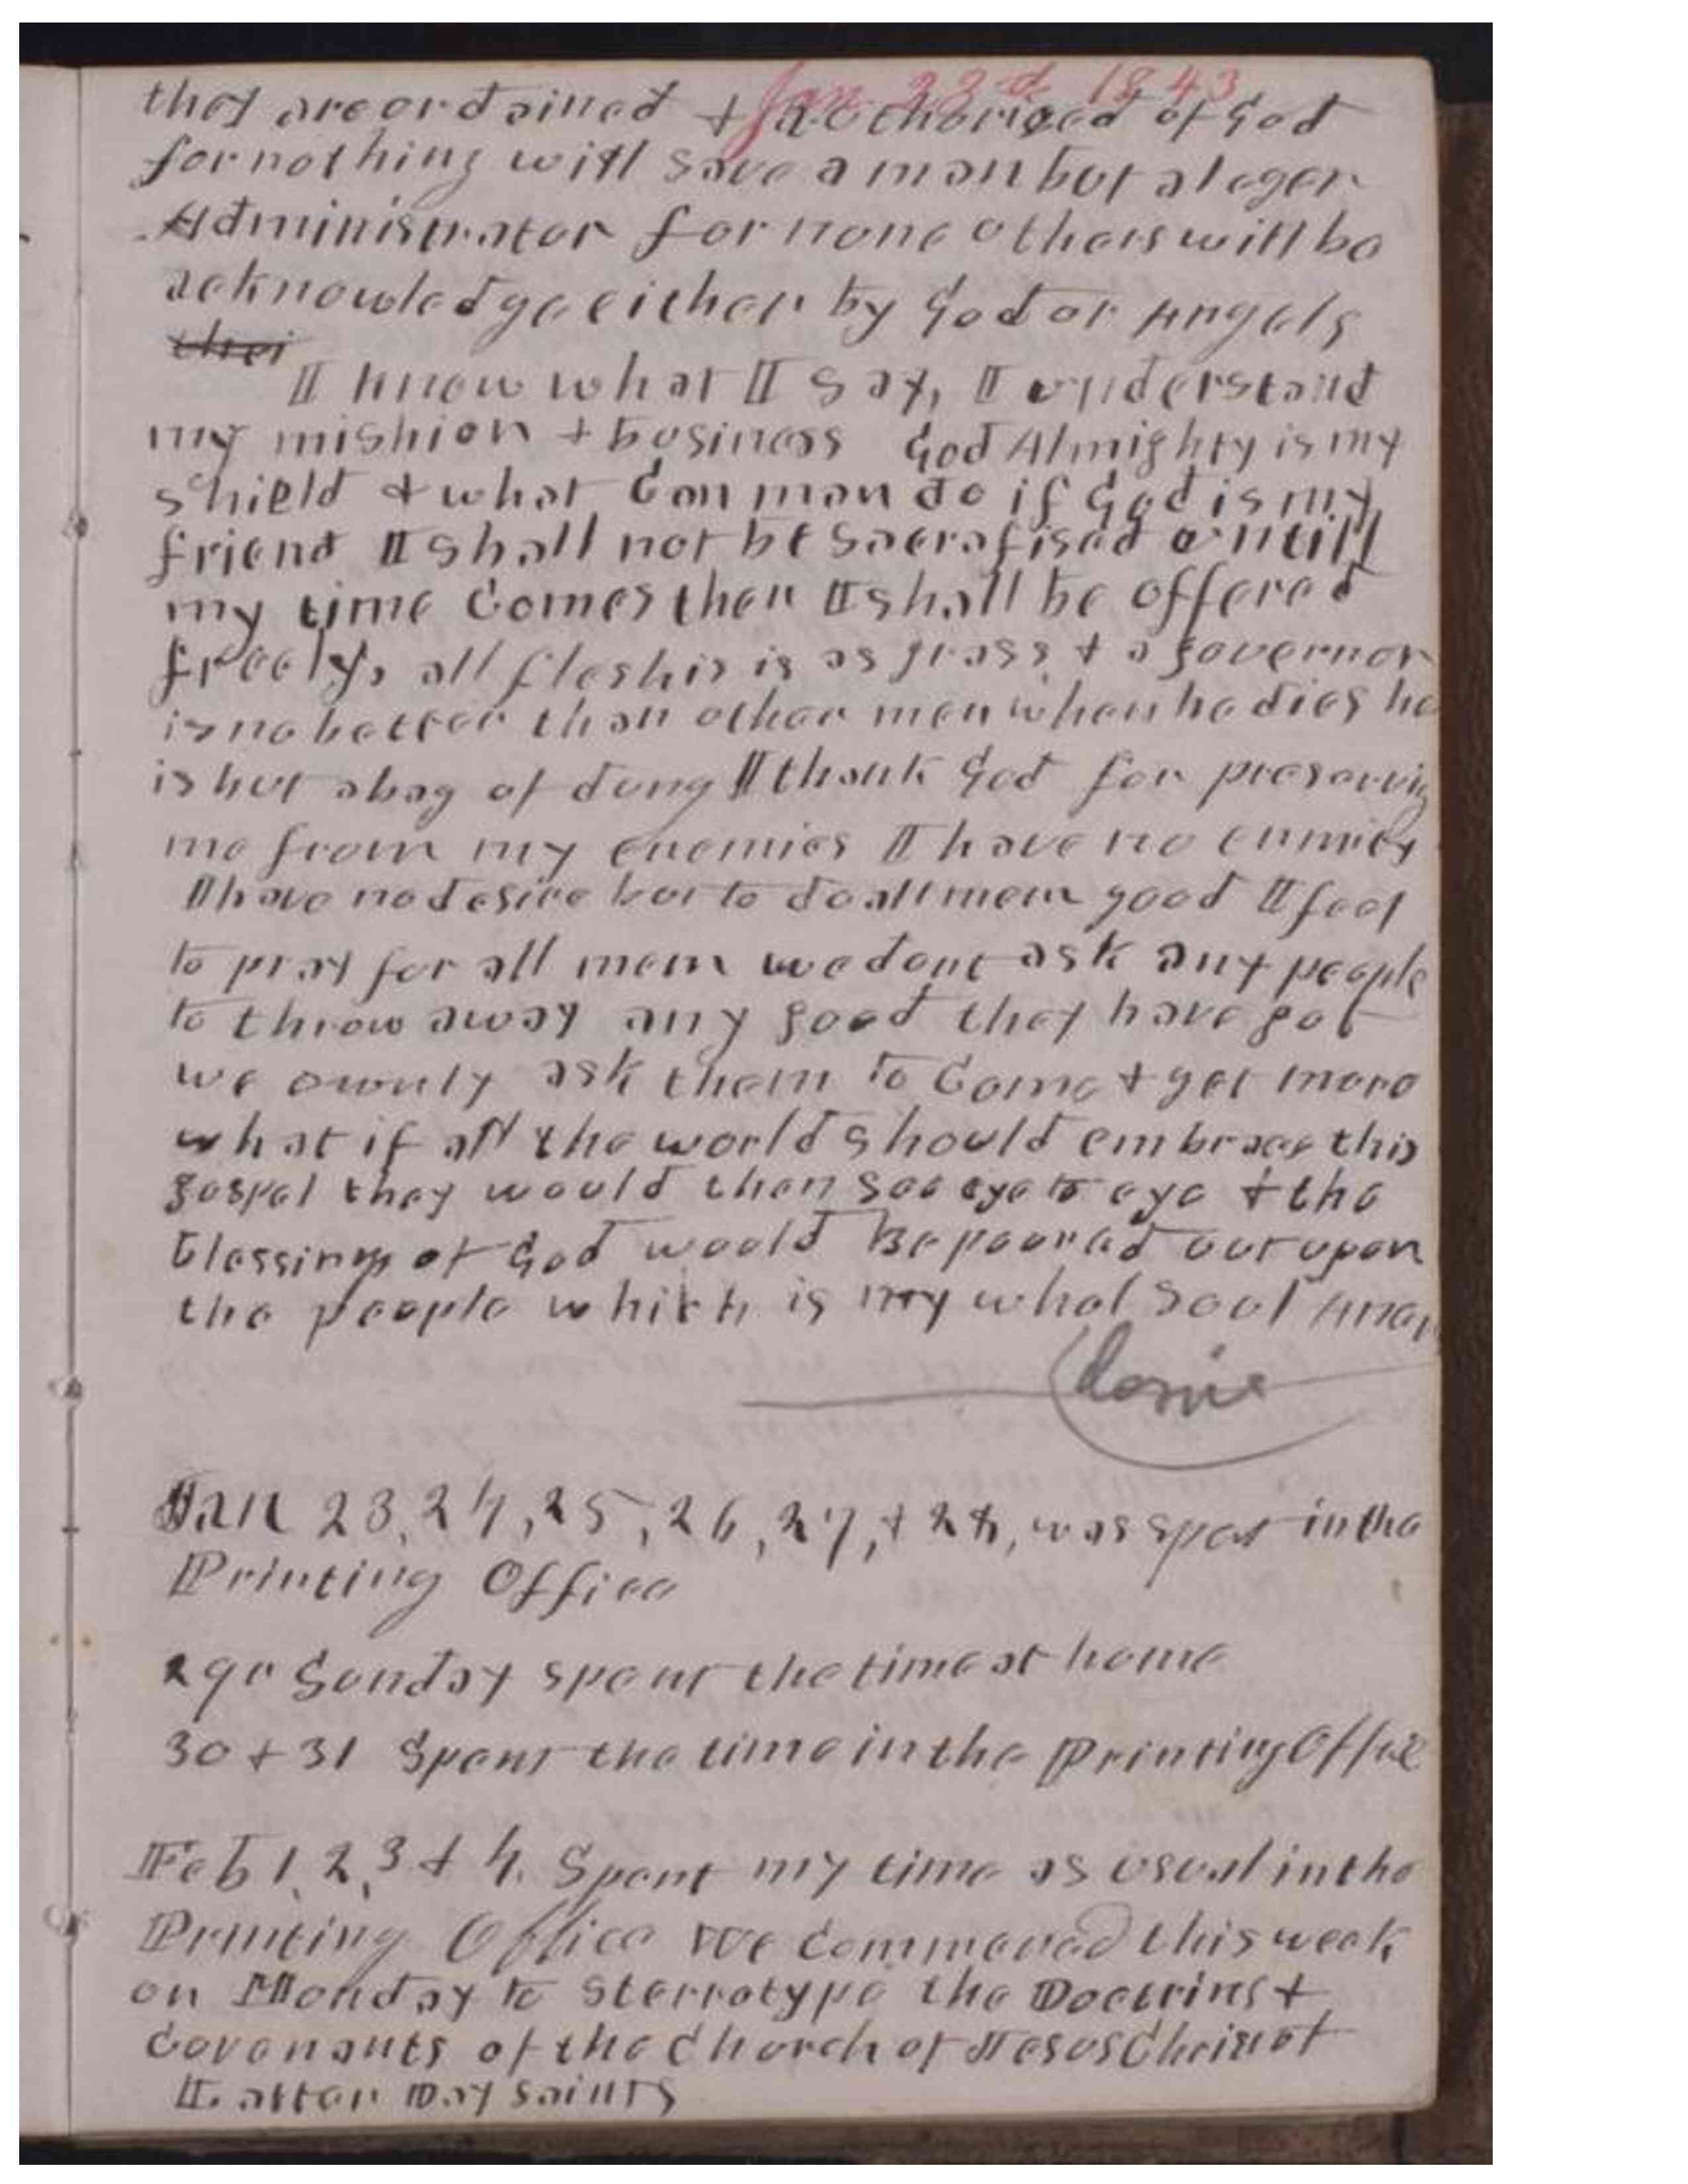 Jan. 22d 1843
they are ordained + authorized of God
for nothing will save a man but a leger
Administrator for none others will be
acknowledge either by God or Angels
thei
I know what I say, I understand
my mishion + business God Almighty is my
shield + what Can man do if God is my
friend I shall not be Sacrafised untill
my time Comes then I shall be offered
freely, all fleshis is as grass, + a governor
is no better than other men when he dies he
is but a bag of dung I thank God for preserving
me from my enemies I have no enmity
I have no desire but to do all men good I feel
to pray for all men we dont ask any people
to throw away any good they have got
we ownly ask them to Come + get more
what if all the world should embrace this
gospel they would then see eye to eye + the
blessings of God would be poured out upon
the people which is my whol Soul Amen

Jan 23, 24, 25, 26, 27, + 28, was spet in the
Printing Office
29th Sunday spent the time at home
30 + 31 Spent the time in the Printing Office
Feb 1, 2, 3 + 4. Spent my time as usual in the
Printing Office We Commenced this week
on Monday to Sterrotype the Doctrins +
Covenants of the Church of Jesus Christ of
Latter Day Saints